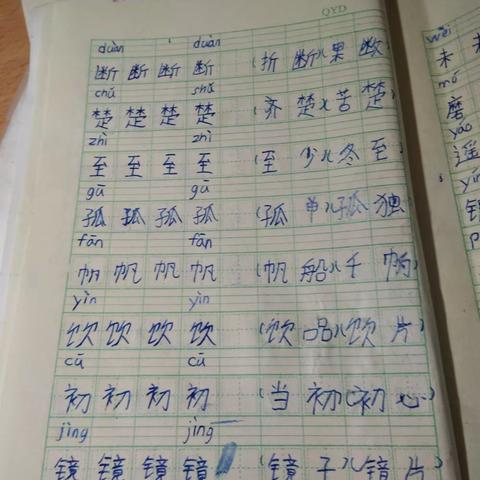 QYD
duàn duàn
断 断 断 断 (折 断)(果 断
chǔ shǔ
楚 楚 楚 楚 (齐 楚)(苦 楚)
zhì zhì
至 至 至 至 (至 少)(冬 至)
gū gū
孤 孤 孤 孤 (孤 单)(孤 独
fān fān
帆 帆 帆 帆 (帆 船)(千 帆)
yìn yìn
饮 饮 饮 饮 (饮 品)(饮 片)
cū cū
初 初 初 初 (当 初)(初 心)
jìng jìng
镜 镜 镜 镜 (镜 子)(镜 片)
wèi
未
mó
磨
yáo
遥